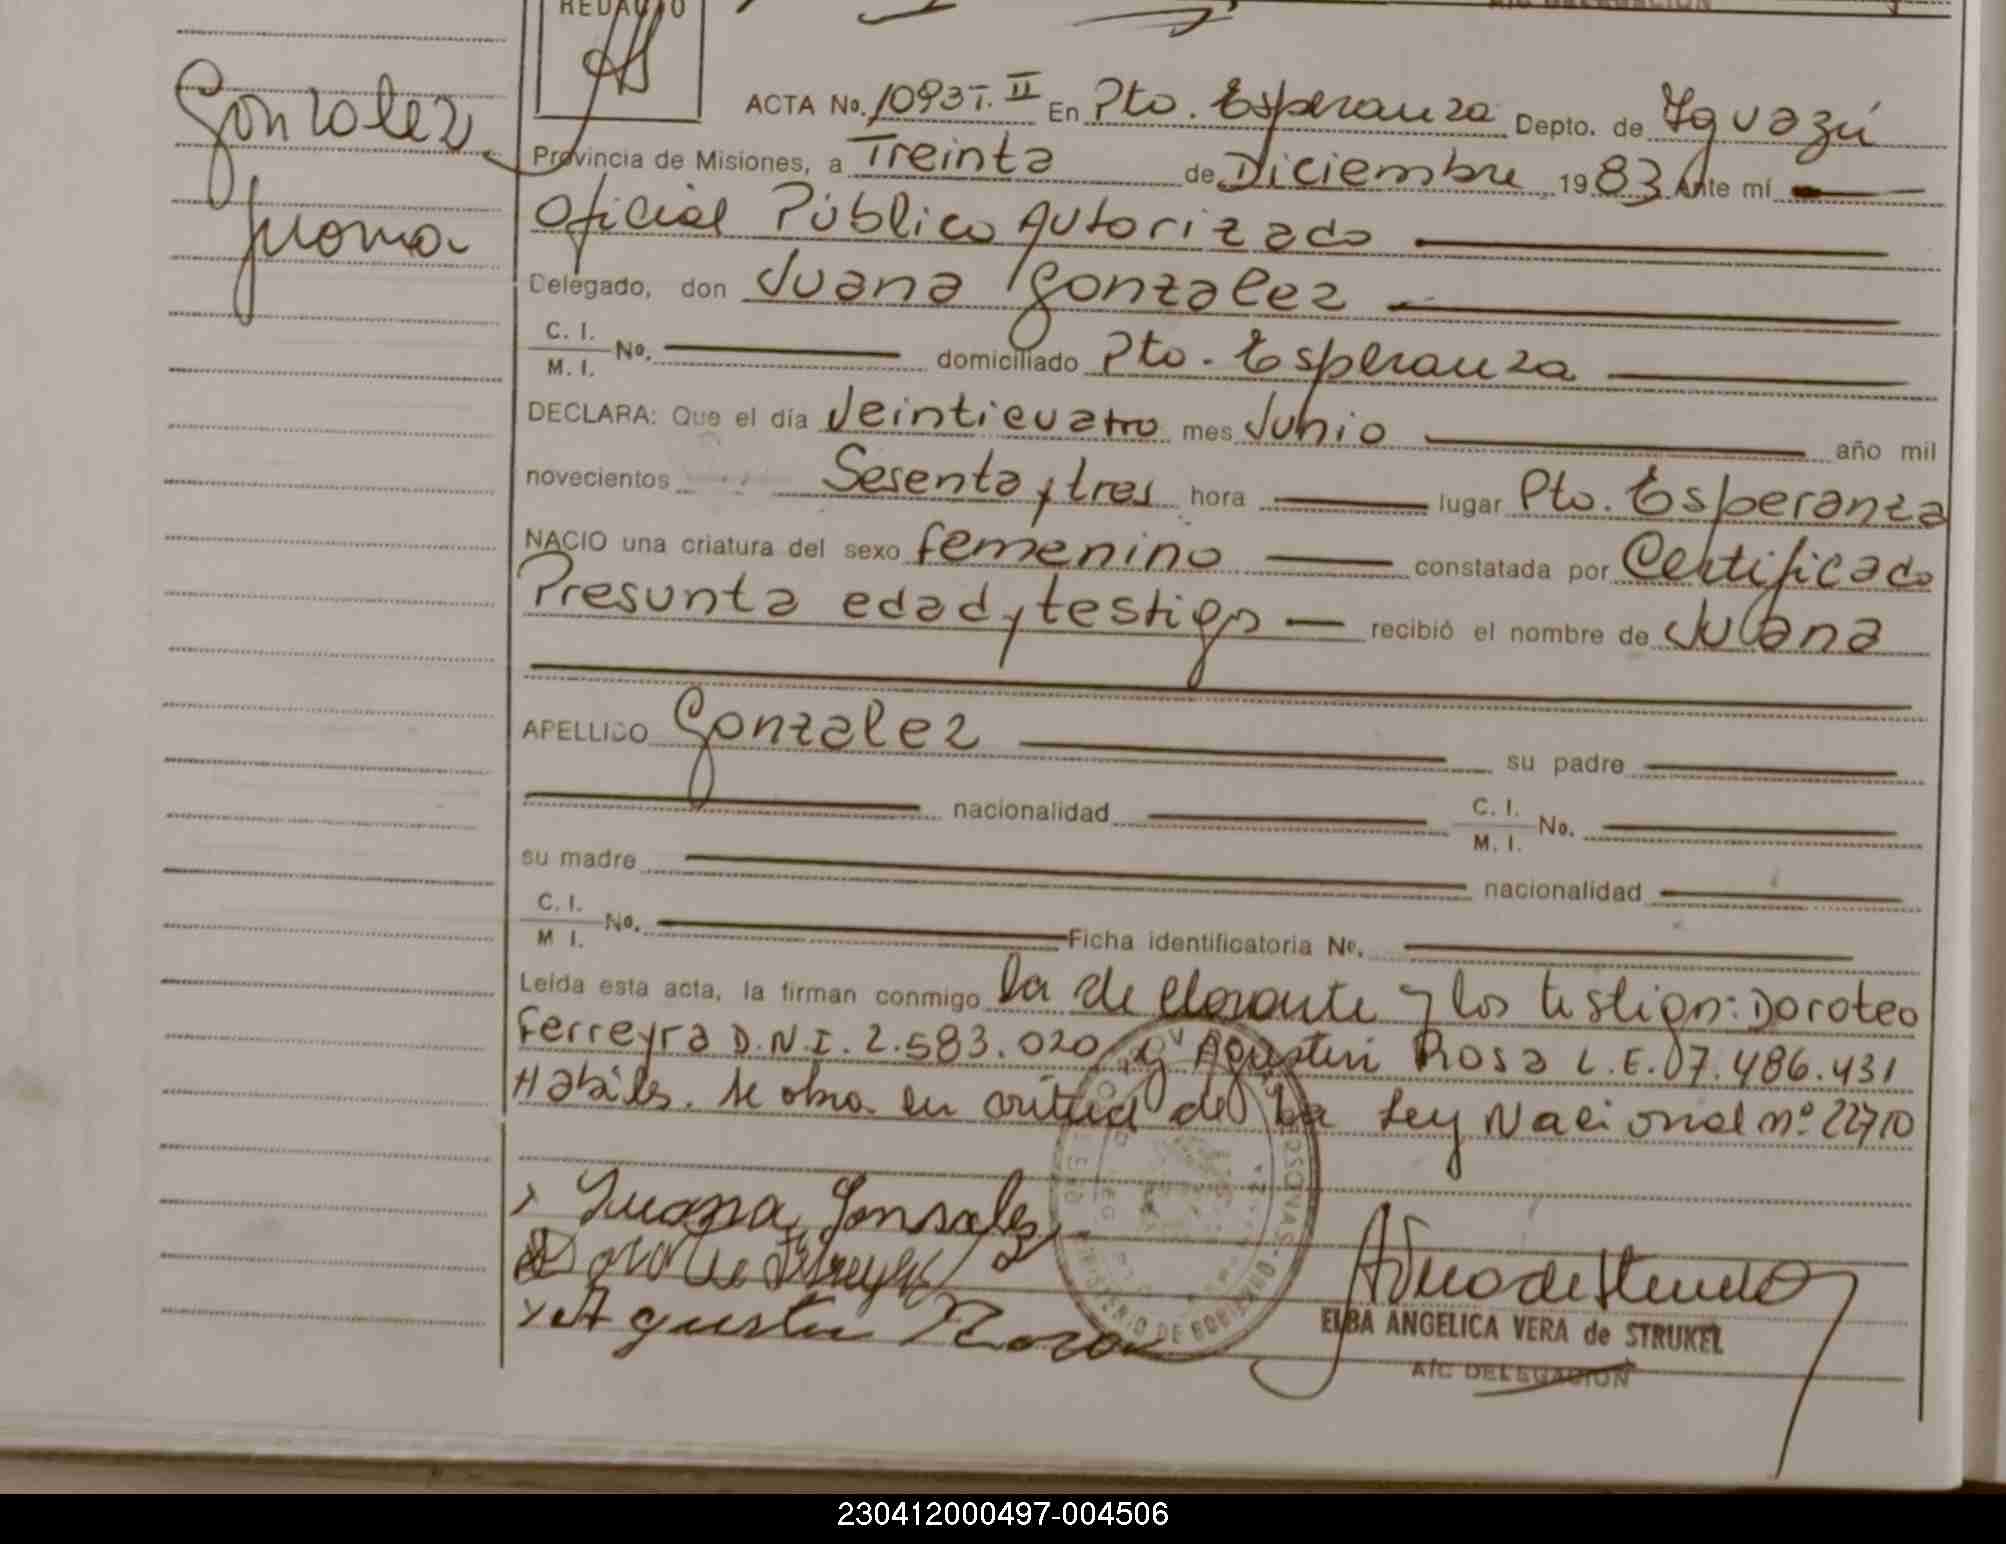 REDACTO
Gonzalez
Juana
ACTA No. 1093 T. II En Pto. Esperanza Depto. de Iguazú
Provincia de Misiones, a Treinta de Diciembre 1983 Ante mí
Oficial Público Autorizado
Delegado, don Juana Gonzalez
C. I.
M. I. No. domiciliado Pto. Esperanza
DECLARA: Que el día Veinticuatro mes Junio año mil
novecientos Sesenta y tres hora lugar Pto. Esperanza
NACIO una criatura del sexo femenino constatada por Certificado
Presunta edad y testigo recibió el nombre de Juana
APELLIDO Gonzalez su padre
nacionalidad C. I.
M. I. No.
su madre nacionalidad
C. I.
M I. No. Ficha identificatoria No.
Leída esta acta, la firman conmigo la declarante y los testigos: Doroteo
Ferreyra D.N.I. 2.583.020 y Agustin Rosa L.E. 07.486.431
Habiles. Se obra en virtud de la Ley Nacional nº 22710
Juana Gonsalez
Agustin Rosa
MINISTERIO DE GOBIERNO
ELBA ANGELICA VERA de STRUKEL
A/C DELEGACION
230412000497-004506